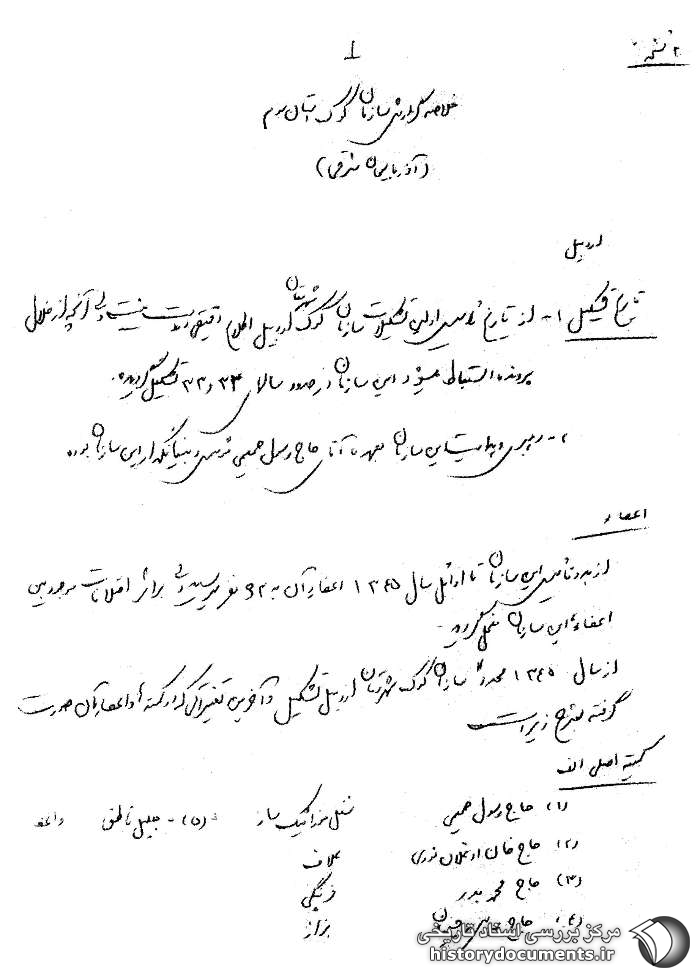 ۲ نسخه
1
خلاصه گزارش سازمان کوک استان سوم
(آذربایجان شرقی)
اردبیل
تاریخ تشکیل ۱- از تاریخ تأسیس اولین تشکیلات سازمان کوک شهرستان اردبیل اطلاع دقیقی در دست نیست ولی آنچه از خلال
پرونده استنباط میشود این سازمان در حدود سالهای ۳۳ و ۳۴ تشکیل گردیده.
۲- رهبری و هدایت این سازمان بعهده آقای حاج رسول مؤسس و بنیانگذار این سازمان بوده
اعضاء
از بدو تأسیس این سازمان تا اوائل سال ۱۳۴۵ اعضای آن به نفر میرسید ولی براثر اختلافات موجود بین
اعضاء این سازمان منحل گردید.
از سال ۱۳۴۵ مجدداً سازمان کوک شهرستان اردبیل تشکیل و آخرین تغییراتی که در کمیته ها و اعضای آن صورت
گرفته بشرح زیر است
کمیته اصلی الف
(۱) حاج رسول شغل موزائیک ساز (۵)- جلیل ناطق واعظ
(۲) حاج خان اوغلان نوری علاف
(۳) حاج محمد بدر
(۴) حاج بزاز
مرکز بررسی اسناد تاریخی
historydocuments.ir